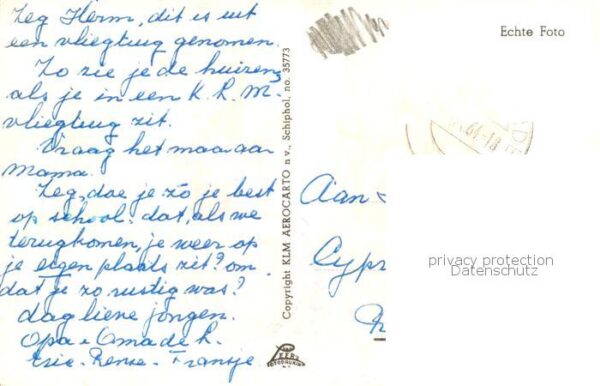 Zeg Herm, dit is uit
een vliegtuig genomen.
Zo zie je de huizen
als je in een K.L.M.
vliegtuig zit.
Vraag het maar aan
Mama.
Zeg, doe je zo je best
op school. dat, als we
terugkomen, je weer op
je eigen plaats zit? om
dat je zo rustig was?
dag lieve jongen.
Opa + Oma de
Copyright KLM AEROCARTO n v., Schiphol, no. 35773
Echte Foto
Aan
Cypr
privacy protection
Datenschutz